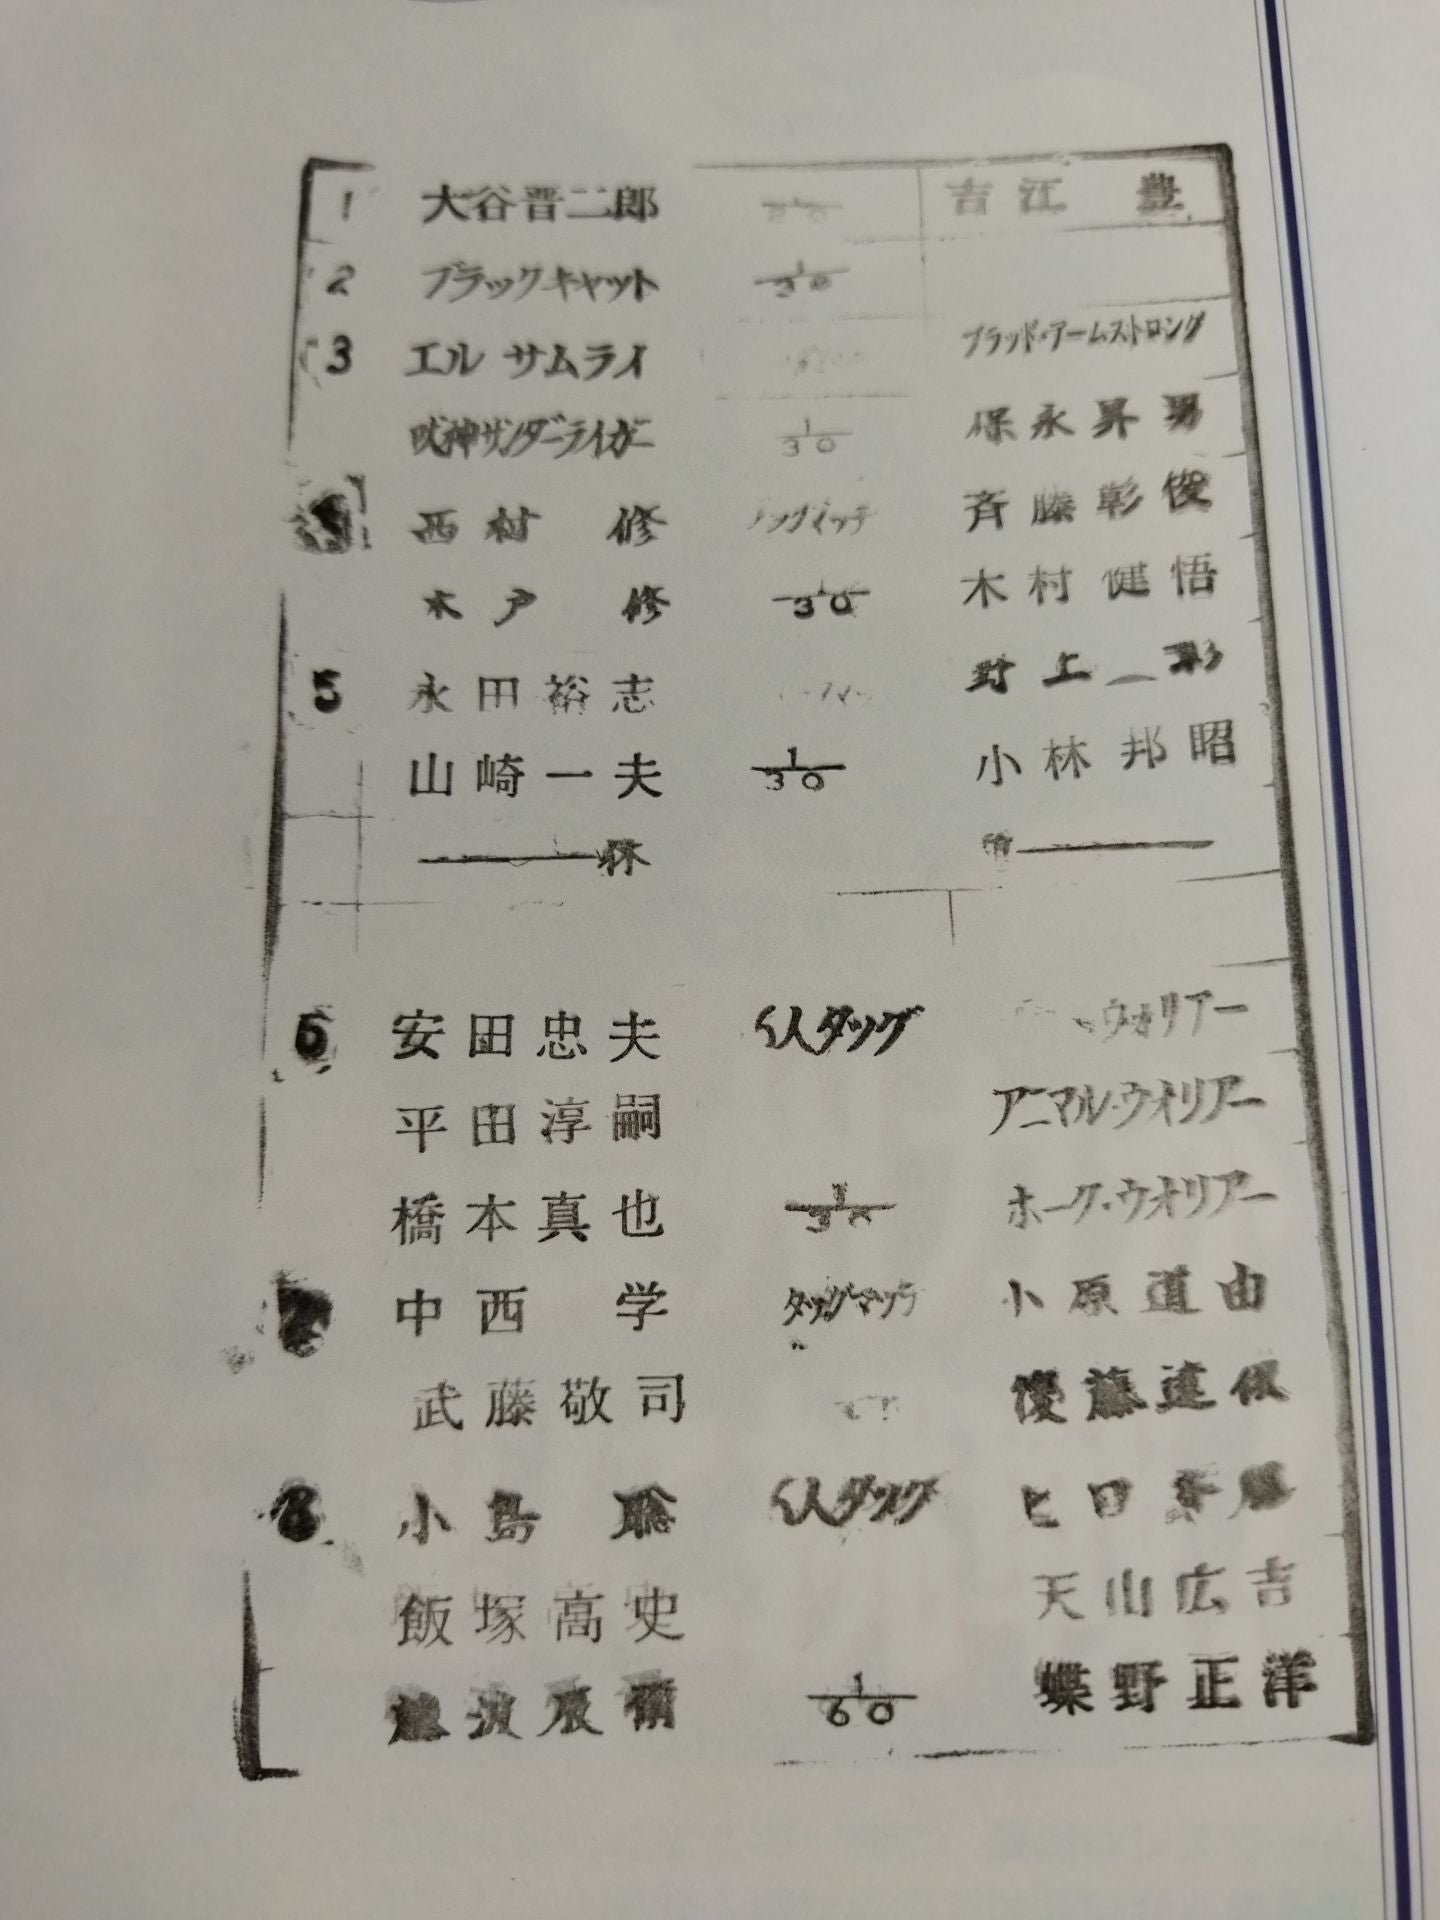 1 大谷晋二郎 1/20 吉江 豊
2 ブラックキャット 1/30
3 エル サムライ ブラッド・アームストロング
獣神サンダーライガー 1/30 保永昇男
西村 修 タッグマッチ 斉藤彰俊
木戸 修 1/30 木村健悟
5 永田裕志 野上 彰
山崎一夫 1/30 小林邦昭
休 憩
6 安田忠夫 6人タッグ ウオリアー
平田淳嗣 アニマル・ウオリアー
橋本真也 1/30 ホーク・ウオリアー
7 中西 学 タッグマッチ 小原道由
武藤敬司 後藤達俊
8 小島 聡 6人タッグ ヒロ斉藤
飯塚高史 天山広吉
藤波辰爾 1/60 蝶野正洋